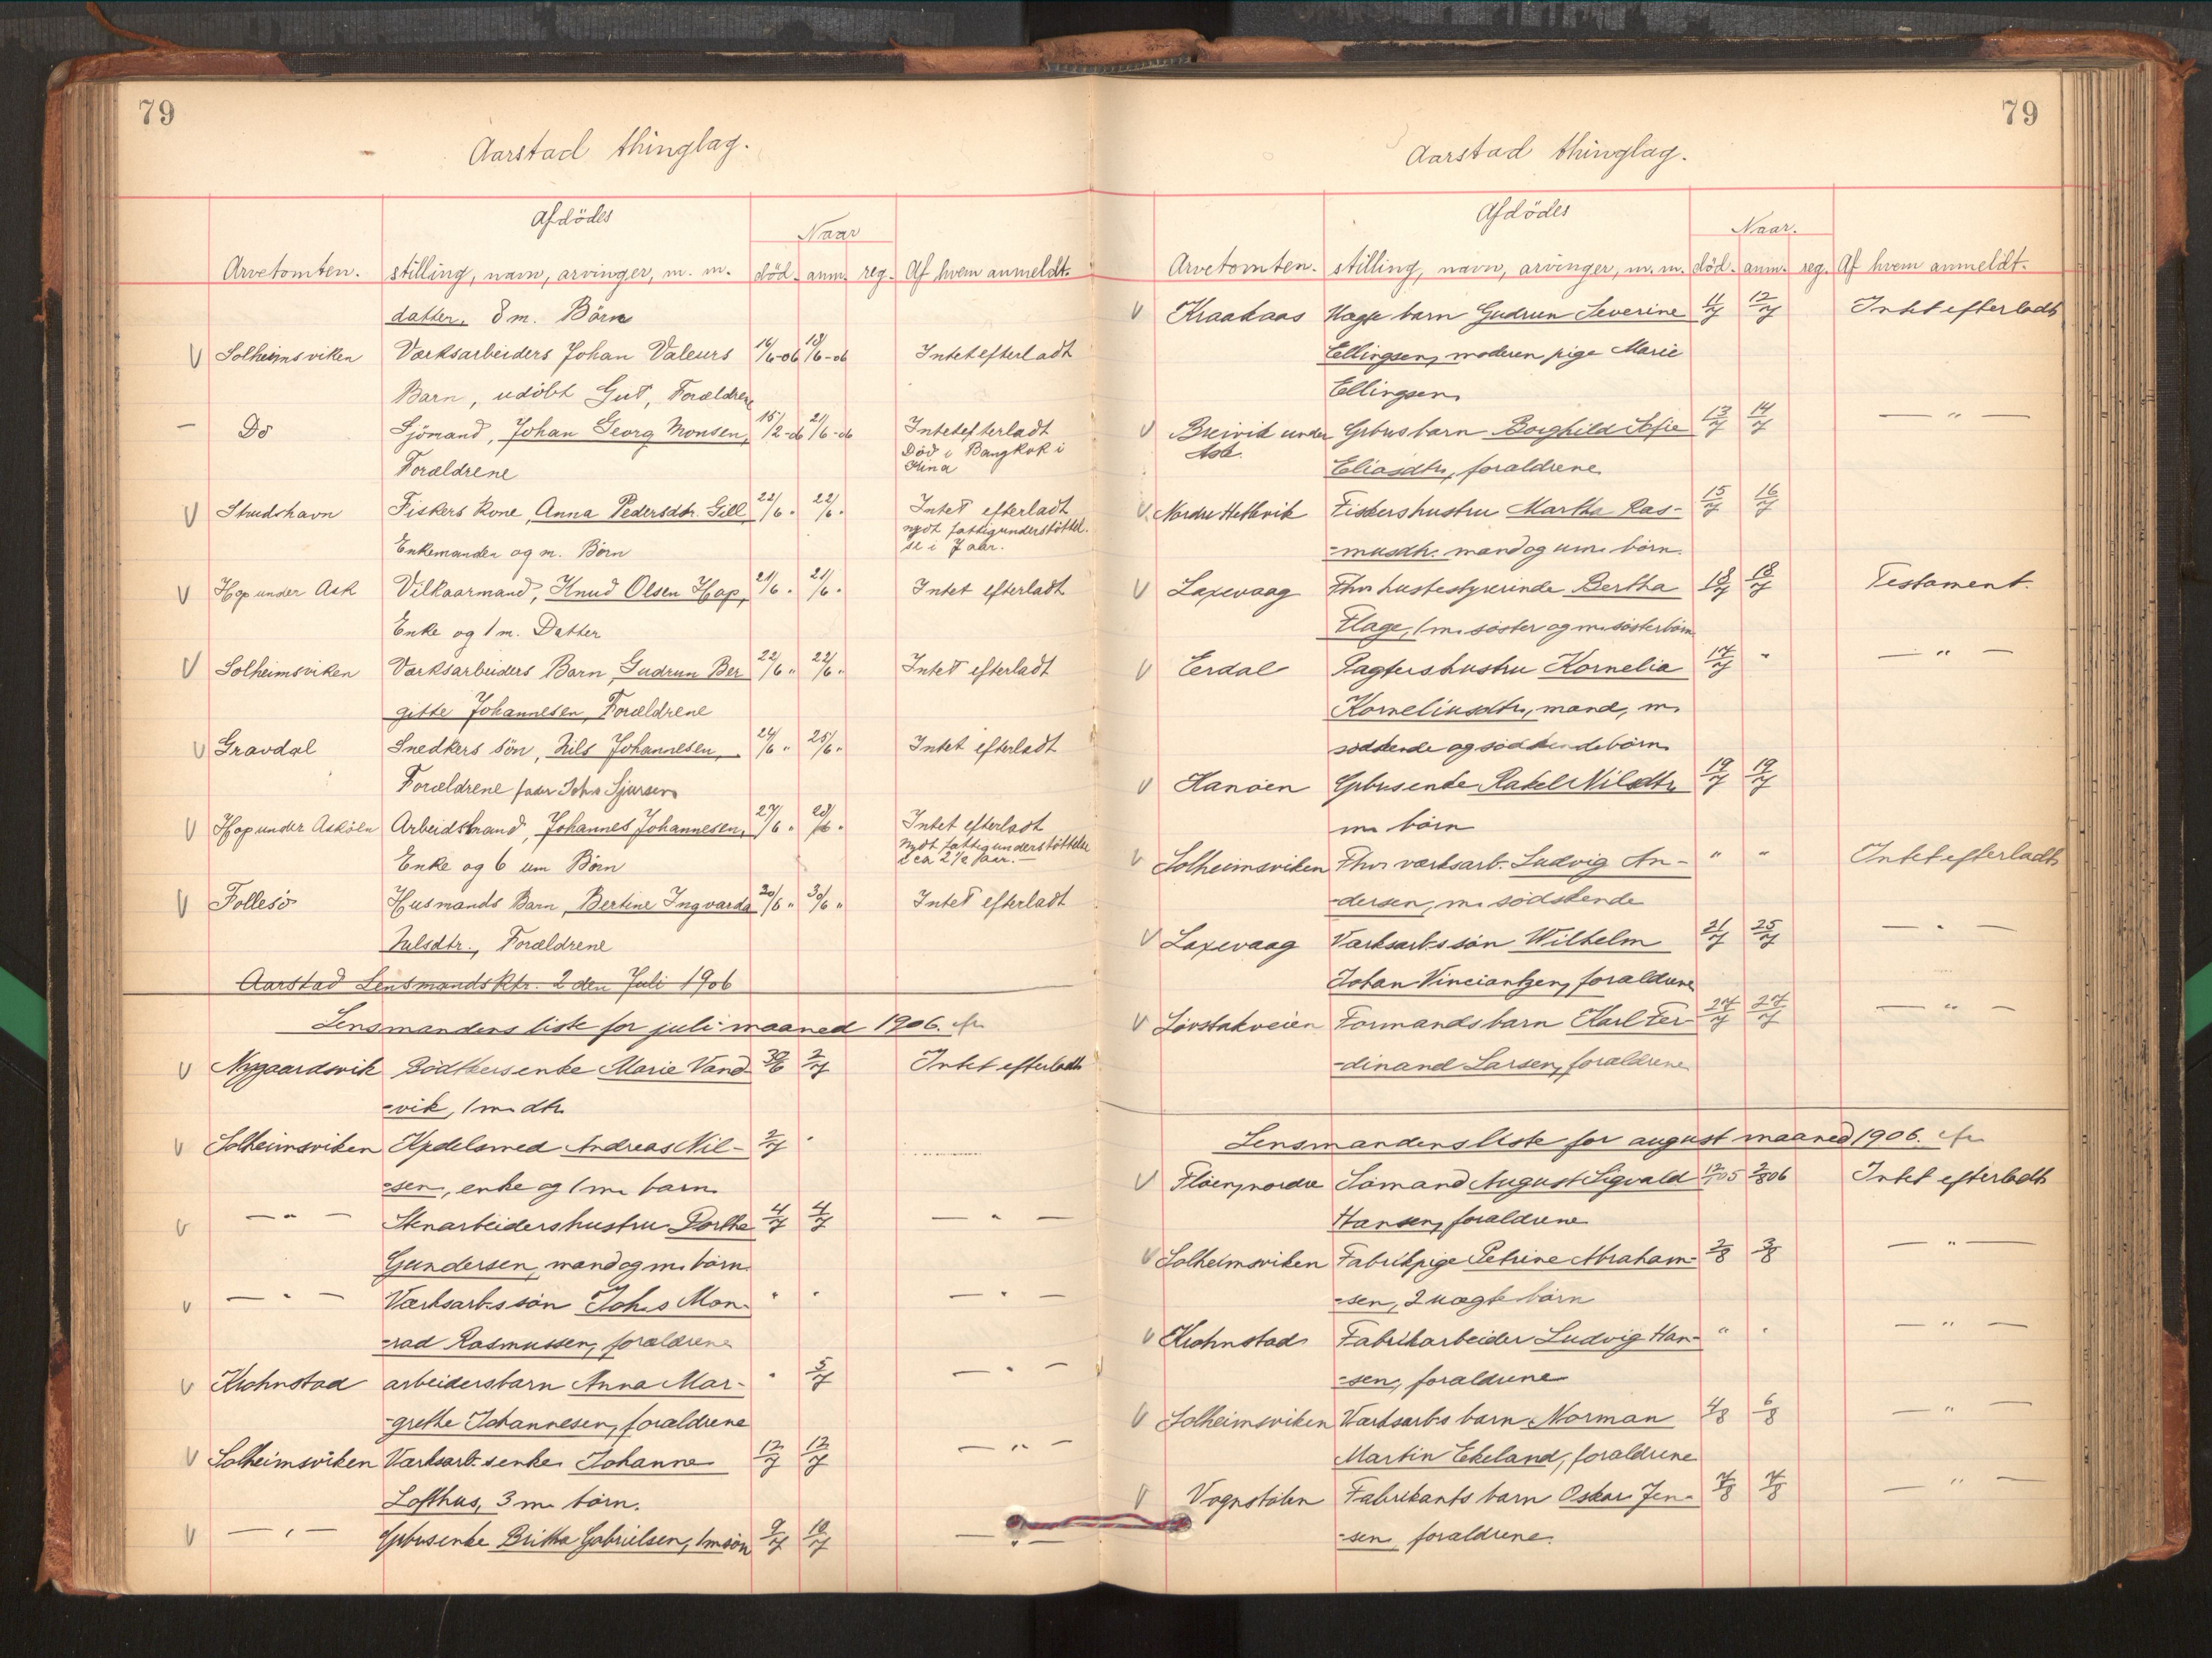 79
Aarstad thinglag.
Afdödes
Naar
Arvetomten. stilling, navn, arvinger, m. m. död. anm. reg. Af hvem anmeldt.
datter, 8 m. Börn
V Solheimsviken Værksarbeiders Johan Valeurs 16/6-06 18/6-06 Intet efterladt
Barn, udöbt Gut, Forældrene
— Do Sjömand, Johan Georg Monsen, 15/2-06 21/6-06 Intet efterladt
Död i Bangkok i
Kina
Forældrene
V Strudshavn Fiskers Kone, Anna Pedersdtr. Gill 22/6 " 22/6 " Intet efterladt
nydt fattigunderstöttel.
se i 7 aar.
Enkemanden og m. Börn
V Hop under Ask Vilkaarmand, Knud Olsen Hop, 21/6 " 21/6 " Intet efterladt
Enke og 1 m. Datter
V Solheimsviken Værksarbeiders Barn Gudrun Ber 22/6 " 22/6 " Intet efterladt
gitte Johannesen, Forældrene
V Gravdal Snedkers sön, Nils Johannesen, 24/6 " 25/6 " Intet efterladt
Forældrene fader Johs Sjursen
V Hop under Asköen Arbeidsmand, Johannes Johannesen, 27/6 " 28/6 " Intet efterladt
Nydt fattigunderstöttelse
i ca 2 1/2 aar. —
Enke og 6 um Börn
V Follesö Husmands Barn, Bertine Ingvarda 20/6 " 30/6 " Intet efterladt
Nilsdtr., Forældrene
Aarstad Lensmandsktr. 2 den Juli 1906
Lensmandens liste for juli maaned 1906.
V Nygaardsvik Bödkersenke Marie Vand- 30/6 2/7 Intet efterladt
-vik, 1 m. dtr.
V Solheimsviken Kjedelsmed Andreas Nil- 2/7 "
-sen, enke og 1 m. barn.
V — " — Stenarbeidershustru Dorthe 4/7 4/7 — " —
Gundersen, mand og m. börn.
V — " — Værksarb.s sön Johs Mon- " " — " —
-rad Rasmussen, forældrene
V Krohnstad arbeidersbarn Anna Mar- " 5/7 — " —
-grethe Johannesen, forældrene
V Solheimsviken Værksarb.senke Johanne 12/7 12/7 — " —
Lofthus, 3 m. börn.
V — " — Gbrusenke Britha Gabrielsen, 1 m sön 9/7 10/7 — " —
79
Aarstad thinglag.
Afdödes
Naar.
Arvetomten. stilling, navn, arvinger, m. m. död. anm. reg. Af hvem anmeldt.
V Kraakaas Uægte barn Gudrun Severine 11/7 12/7 Intet efterladt
Ellingsen, moderen pige Marie
Ellingsen
V Breivik under Gbrusbarn Borghild Sofie 13/7 14/7 — " —
Ask.
Eliasdtr, forældrene
V Nordre Hetlevik Fiskershustru Martha Ras- 15/7 16/7
-musdtr. mand og um. börn.
V Laxevaag Fhv. husbestyrerinde Bertha 18/7 18/7 Testament.
Flage, 1 m. söster og m. sösterbörn
V Erdal Pagtershustru Kornelia 17/7 " — " —
Korneliusdtr, mand, m.
södskende og södskendebörn
V Hanöen Gbrusenke Rakel Nilsdtr 19/7 19/7
m. börn
V Solheimsviken Fhv. værksarb. Ludvig An- " " Intet efterladt
-dersen, m. södskende
V Laxevaag Værksarb.s sön Wilhelm 21/7 25/7 — " —
Johan Vinciantzen, forældrene
V Lövstakveien Formandsbarn Karl Fer- 27/7 27/7 — " —
-dinand Larsen, forældrene
Lensmandens liste for august maaned 1906.
V Flöen, nordre Sömand August Sigvald 2/8 06 Intet efterladt
Hansen, forældrene
V Solheimsviken Fabrikpige Petrine Abraham- 2/8 3/8 — " —
-sen, 2 uægte börn
V Krohnstad Fabrikarbeider Ludvig Han- " " — " —
-sen, forældrene
V Solheimsviken Værksarb.s barn Norman 4/8 6/8 — " —
Martin Ekeland, forældrene
V Vognstölen Fabrikants barn Oskar Jen- 7/8 7/8 — " —
-sen forældrene.